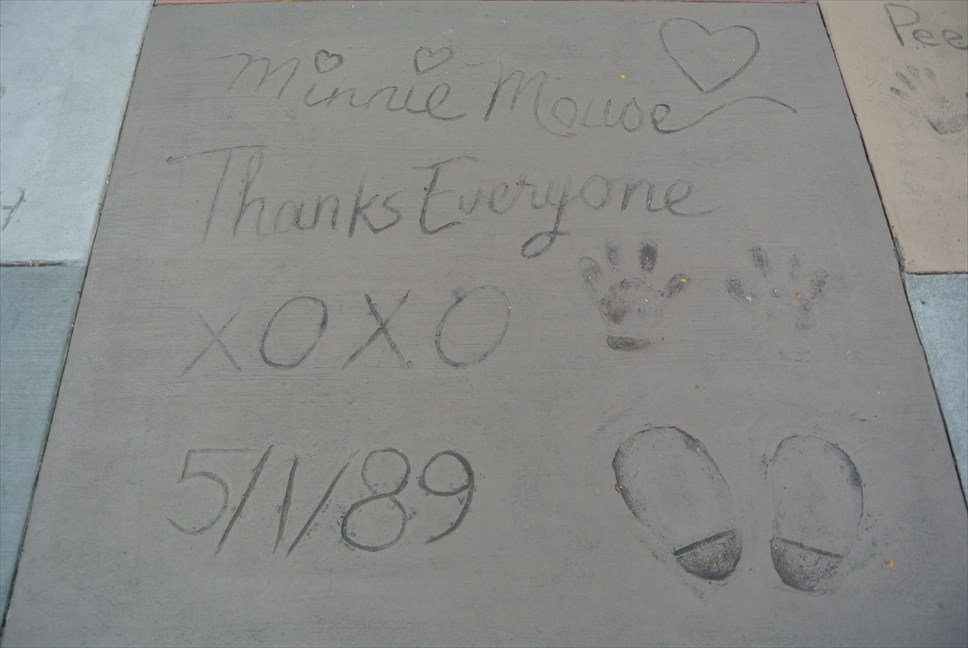 Minnie Mouse
Thanks Everyone
XOXO
5/1/89
Pee